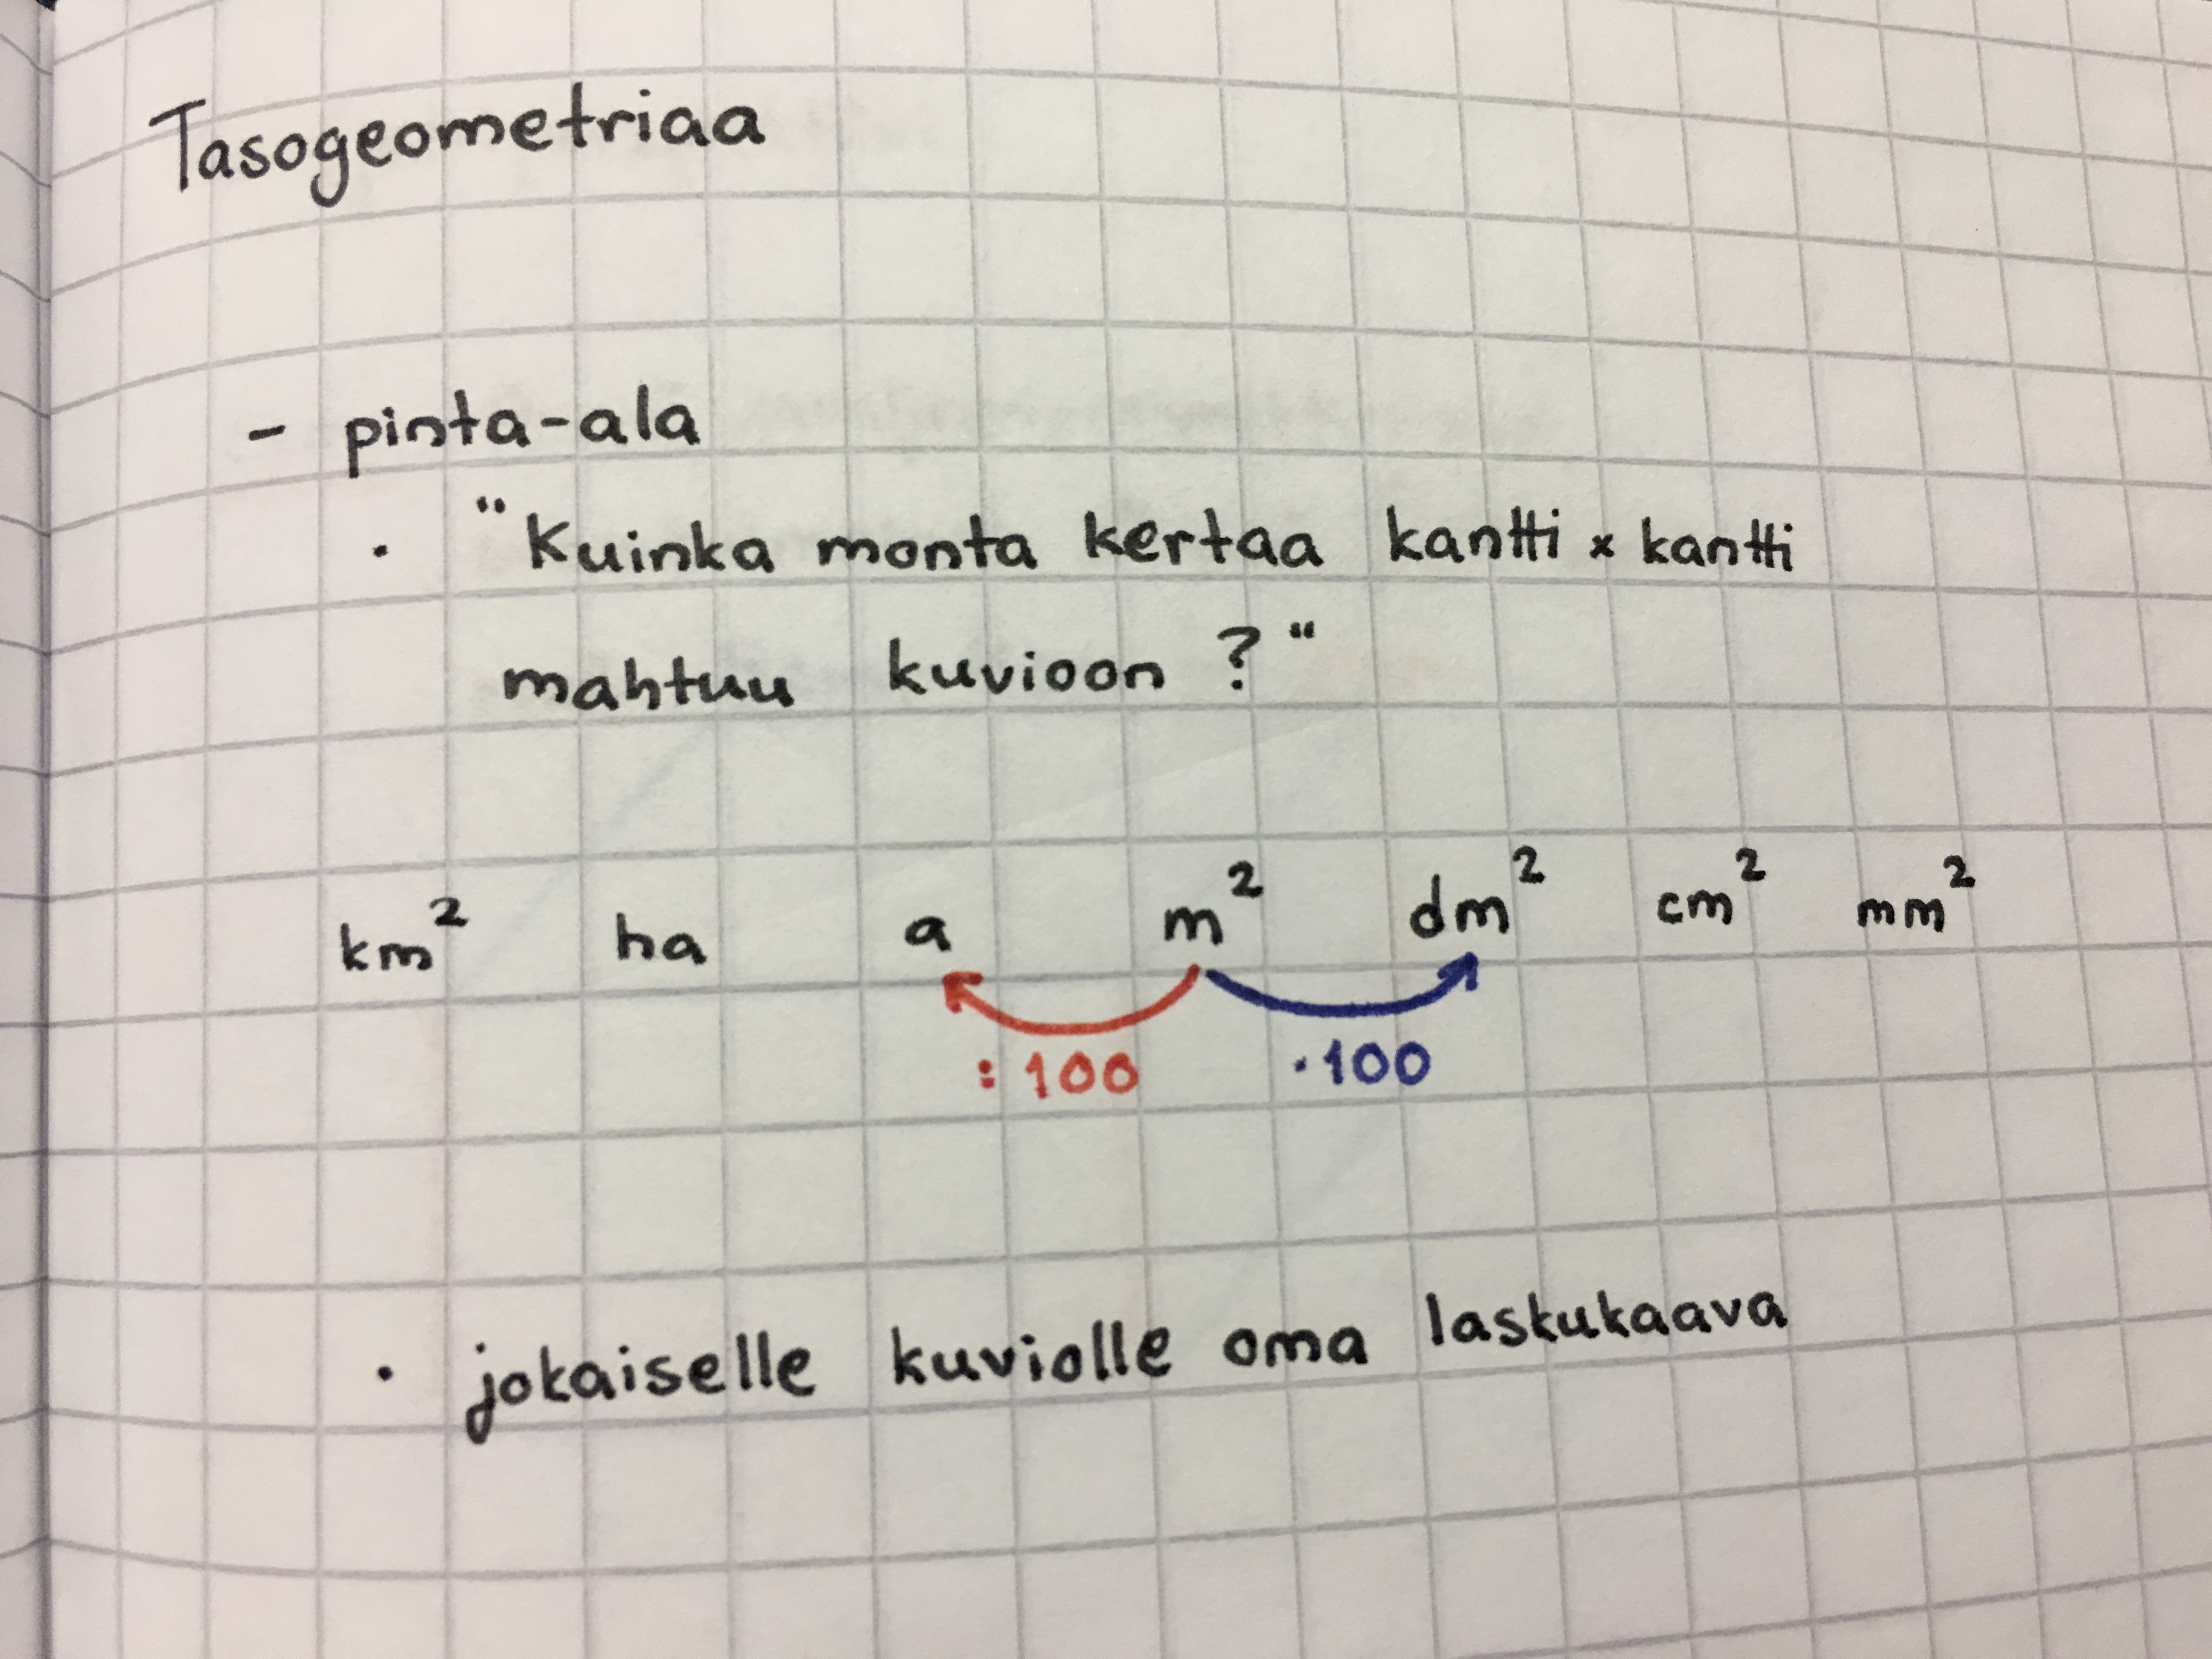 Tasogeometriaa
- pinta-ala
· "Kuinka monta kertaa kantti x kantti
mahtuu kuvioon ?"
km² ha a m² dm² cm² mm²
:100 ·100
· jokaiselle kuviolle oma laskukaava